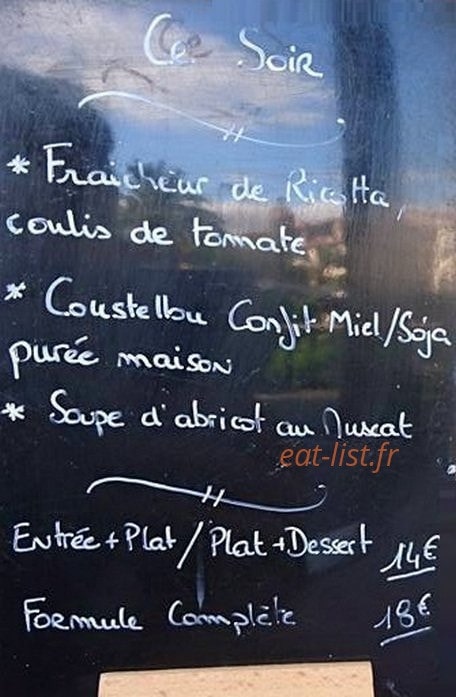 Ce Soir
* Fraîcheur de Ricotta,
coulis de tomate
* Coustellou Confit Miel/Soja
purée maison
* Soupe d'abricot au Muscat
eat-list.fr
Entrée + Plat / Plat + Dessert 14€
Formule Complète 18€